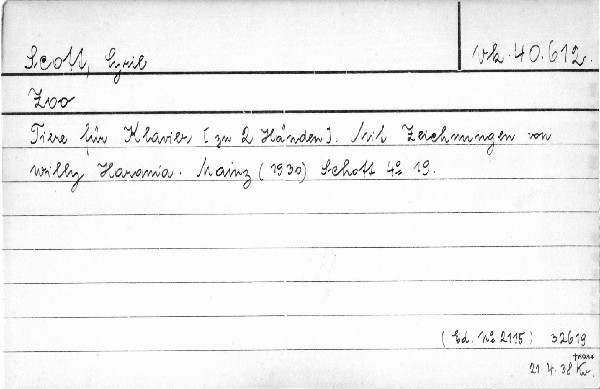 Scott, Cyril
vk. 40.612.
Zoo
Tiere für Klavier [zu 2 Händen]. Mit Zeichnungen von
Willy Harania. Mainz (1930) Schott 4º 19.
(Ed. Nº 2115) 32619
trans
21.4.38 Kw.